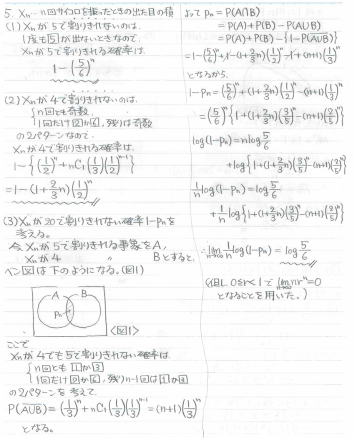 5. Xn…n回サイコロを振ったときの出た目の積
(1) Xnが5で割りきれないのは、
1度も5が出ないときなので、
Xnが5で割りきれる確率は
1-(5/6)^n
(2) Xnが4で割りきれないのは、
n回とも奇数
1回だけ2か6、残りは奇数
の2パターンなので、
Xnが4で割りきれる確率は
1-{(1/2)^n+nC1(1/3)(1/2)^{n-1}}
=1-(1+2/3n)(1/2)^n
(3) Xnが20で割りきれない確率1-pnを
考える。
今、Xnが5で割りきれる事象をA,
Xnが4 〃 Bとすると、
ベン図は下のようになる。(図1)
A B
pn
<図1>
ここで
Xnが4でも5で割りきれない確率は
n回とも1か3
1回だけ2か6、残りn-1回は1か3
の2パターンを考えて
P(A∪B)=(1/3)^n+nC1(1/3)(1/3)^{n-1}=(n+1)(1/3)^n
となる。
よってpn=P(A∩B)
=P(A)+P(B)-P(A∪B)
=P(A)+P(B)-{1-P(A∪B)}
=1-(5/6)^n+1-(1+2/3n)(1/2)^n-1+(n+1)(1/3)^n
となるから、
1-pn=(5/6)^n+(1+2/3n)(1/2)^n-(n+1)(1/3)^n
=(5/6)^n{1+(1+2/3n)(3/5)^n-(n+1)(2/5)^n}
log(1-pn)=nlog5/6
+log{1+(1+2/3n)(3/5)^n-(n+1)(2/5)^n}
1/n log(1-pn)=log5/6
+1/n log{1+(1+2/3n)(3/5)^n-(n+1)(2/5)^n}
∴lim n→∞ 1/n log(1-pn)=log5/6
(但し、0≤r<1で lim n→∞ nr^n=0
となることを用いた。)